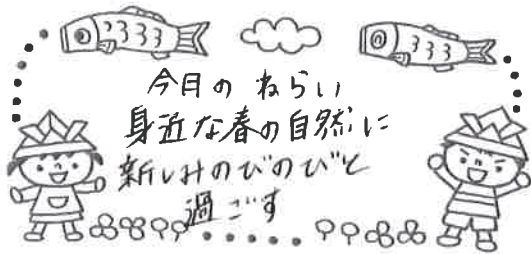 今日のねらい
身近な春の自然に
親しみのびのびと
過ごす